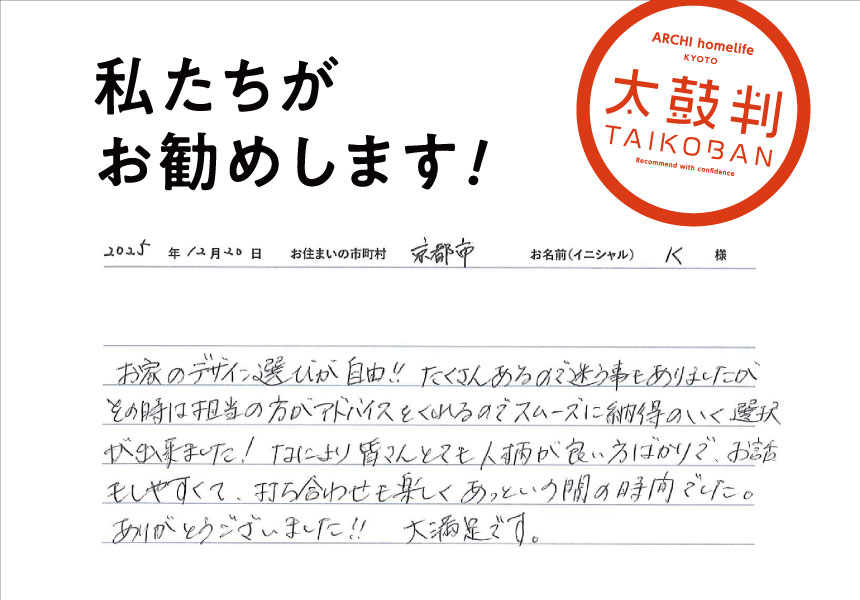 私たちが
お勧めします!
ARCHI homelife
KYOTO
太鼓判
TAIKOBAN
Recommend with confidence
2025 年 12月20日 お住まいの市町村 京都市 お名前(イニシャル) K 様
お家のデザイン選びが自由!! たくさんあるので迷う事もありましたが
その時は担当の方がアドバイスをくれるのでスムーズに納得のいく選択
が出来ました! なにより皆さんとても人柄が良い方ばかりで、お話
もしやすくて、打ち合わせも楽しくあっという間の時間でした。
ありがとうございました!! 大満足です。